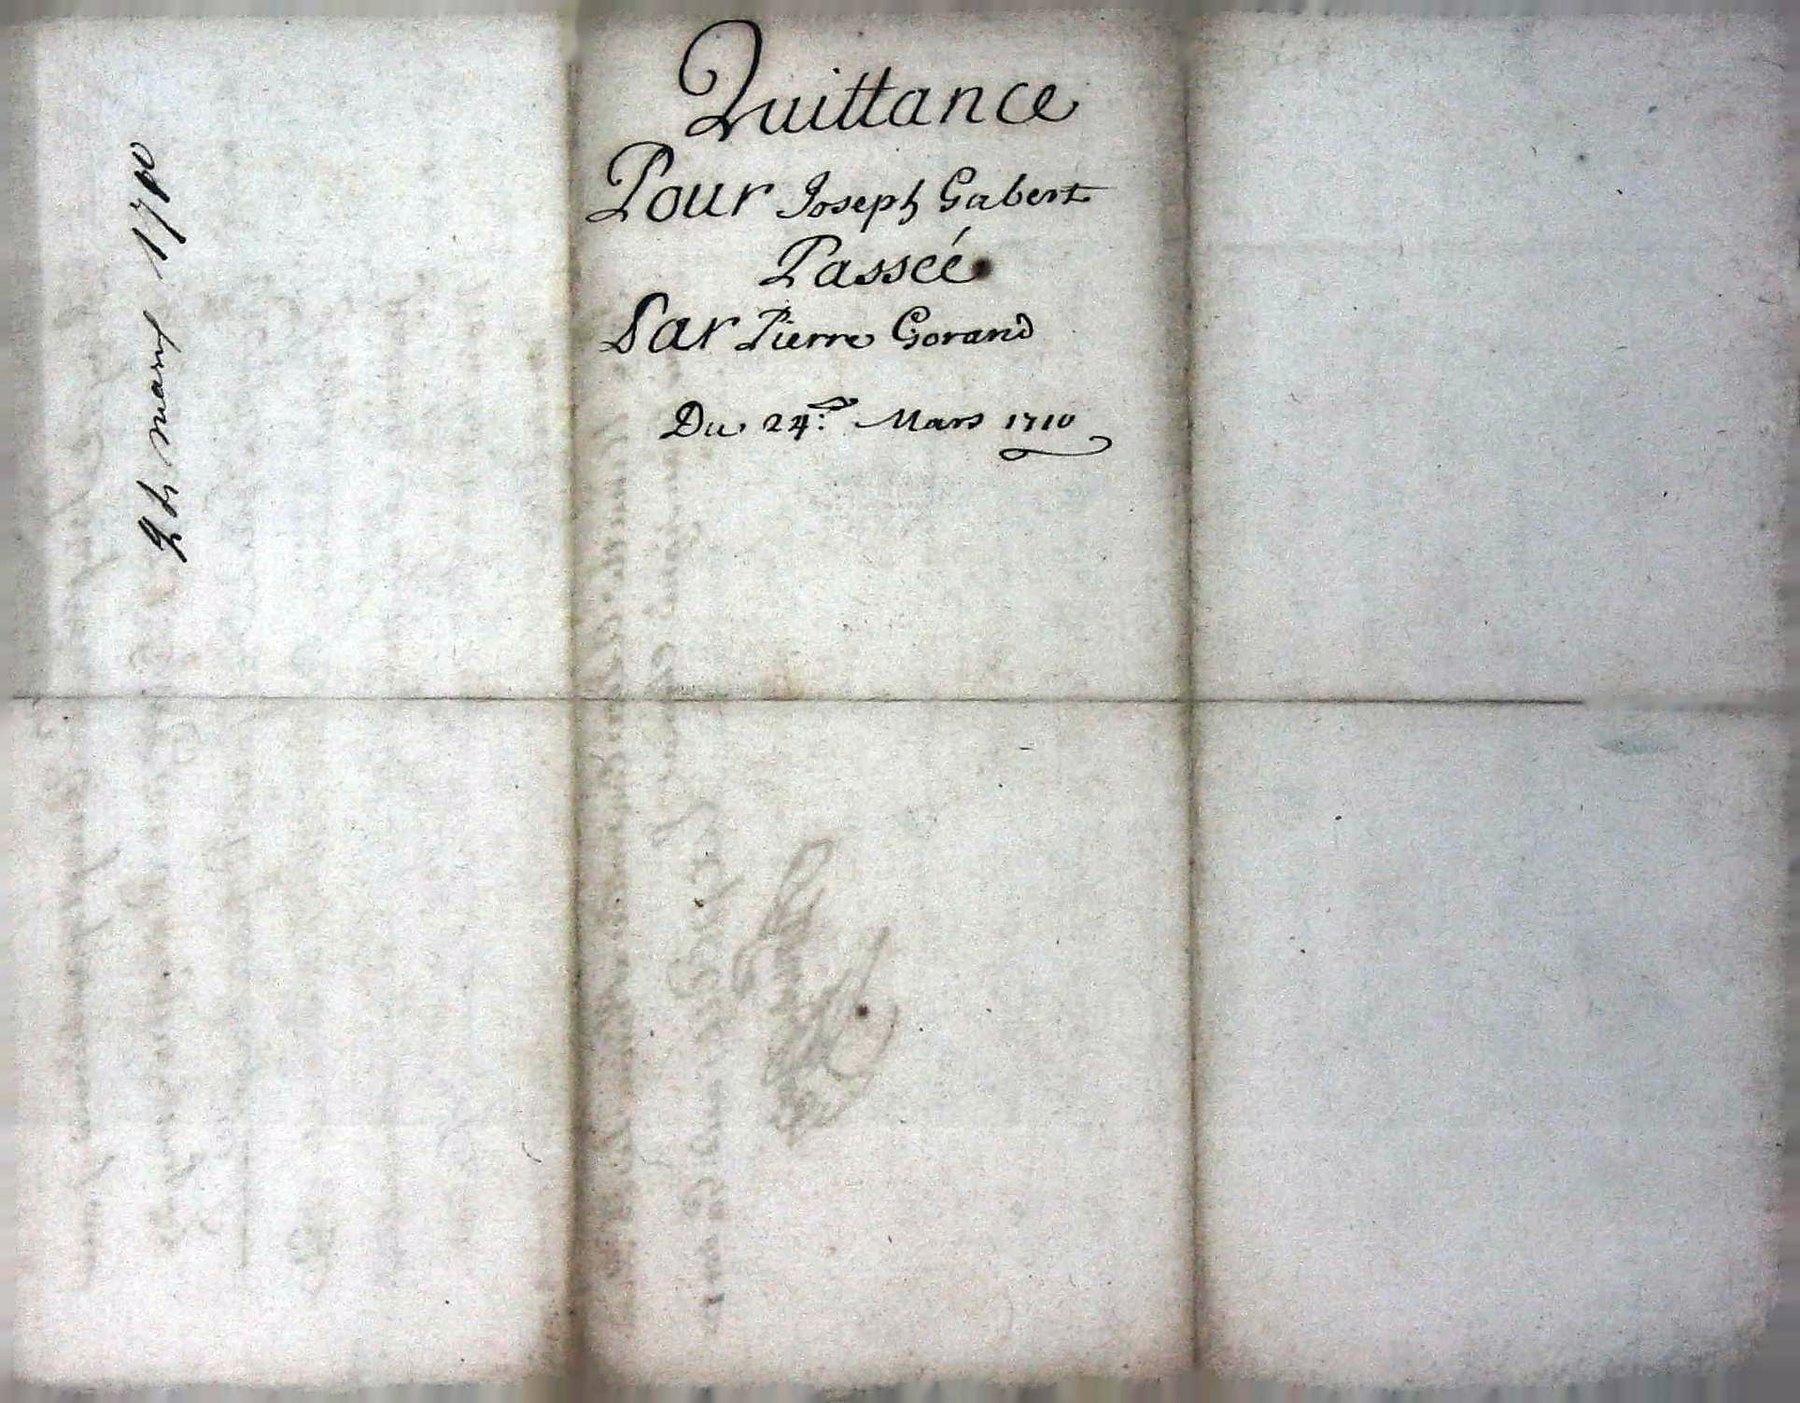 Quittance
Pour Joseph Gabert
Passée
Par Pierre Gorand
Du 24e. Mars 1710
24 mars 1710